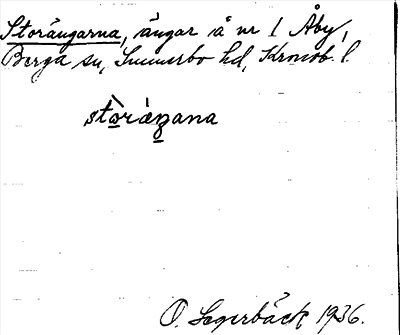 Storängarna, ängar å nr 1 Åby,
Berga sn, Sunnerbo hd, Kronob. l.
stòráŋana
O. Segerbäck 1936.